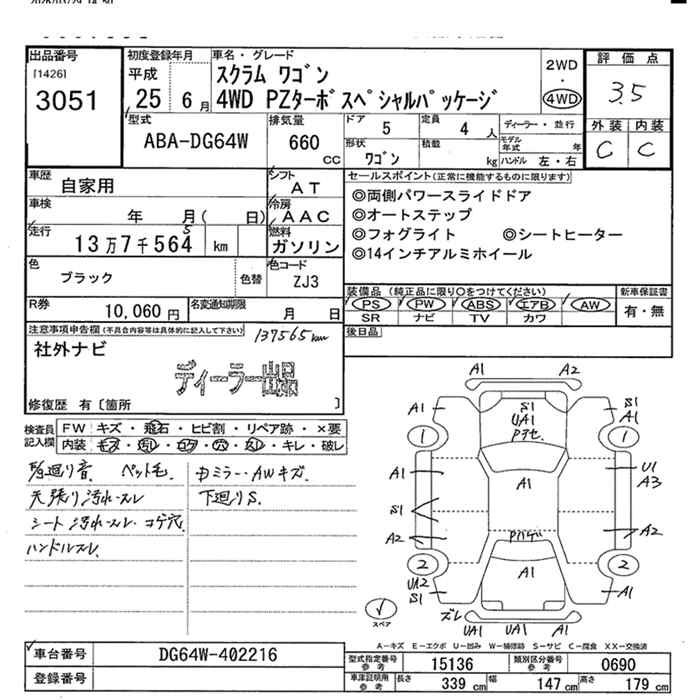 出品番号
[1426]
3051
初度登録年月
平成
25 6月
車名・グレード
スクラム ワゴン
4WD PZターボスペシャルパッケージ
2WD
・
4WD
評価点
3.5
外装 内装
C C
型式
ABA-DG64W
排気量
660
CC
ドア 5
定員 4 人
形状 ワゴン
積載 kg
ディーラー・並行
モデル年式 年
ハンドル 左・右
車歴
自家用
シフト
AT
車検
年 月( 日)
冷房
AAC
走行
13万7千564 km
5
燃料
ガソリン
色
ブラック
色替
色コード
ZJ3
R券
10,060円
名変通知期限
月 日
セールスポイント(正常に機能するものに限ります)
◎両側パワースライドドア
◎オートステップ
◎フォグライト ◎シートヒーター
◎14インチアルミホイール
装備品(純正品に限り○をつけてください)
PS PW ABS エアB AW
SR ナビ TV カワ
新車保証書
有・無
後日品
注意事項申告欄(不具合内容等は具体的に記入して下さい)
137565km
社外ナビ
ディーラー出品
修復歴 有〔箇所 〕
検査員記入欄
FW キズ・飛石・ヒビ割・リペア跡・×要
内装 キズ・汚れ・コゲ・穴・スレ・キレ・破レ
ペット毛
天張り汚れ・スレ
シート汚れ・スレ・コゲ穴
ハンドルスレ
Dミラー・AWキズ
下廻りS
A1 A2
A1
S1
UA1
Pアセ
S1
A1
1
1
A1
A1
U1
A3
S1
A2
Pハゲ
A2
2
2
UA2
S1
A1
A1
ズレ
UA1 UA1 A1
スペア
A-キズ E-エクボ U-凹み W-補修跡 S-サビ C-腐食 XX-交換済
車台番号
DG64W-402216
登録番号
型式指定番号
参考
15136
類別区分番号
参考
0690
車庫証明用
参考
長さ 339 cm
幅 147 cm
高さ 179 cm